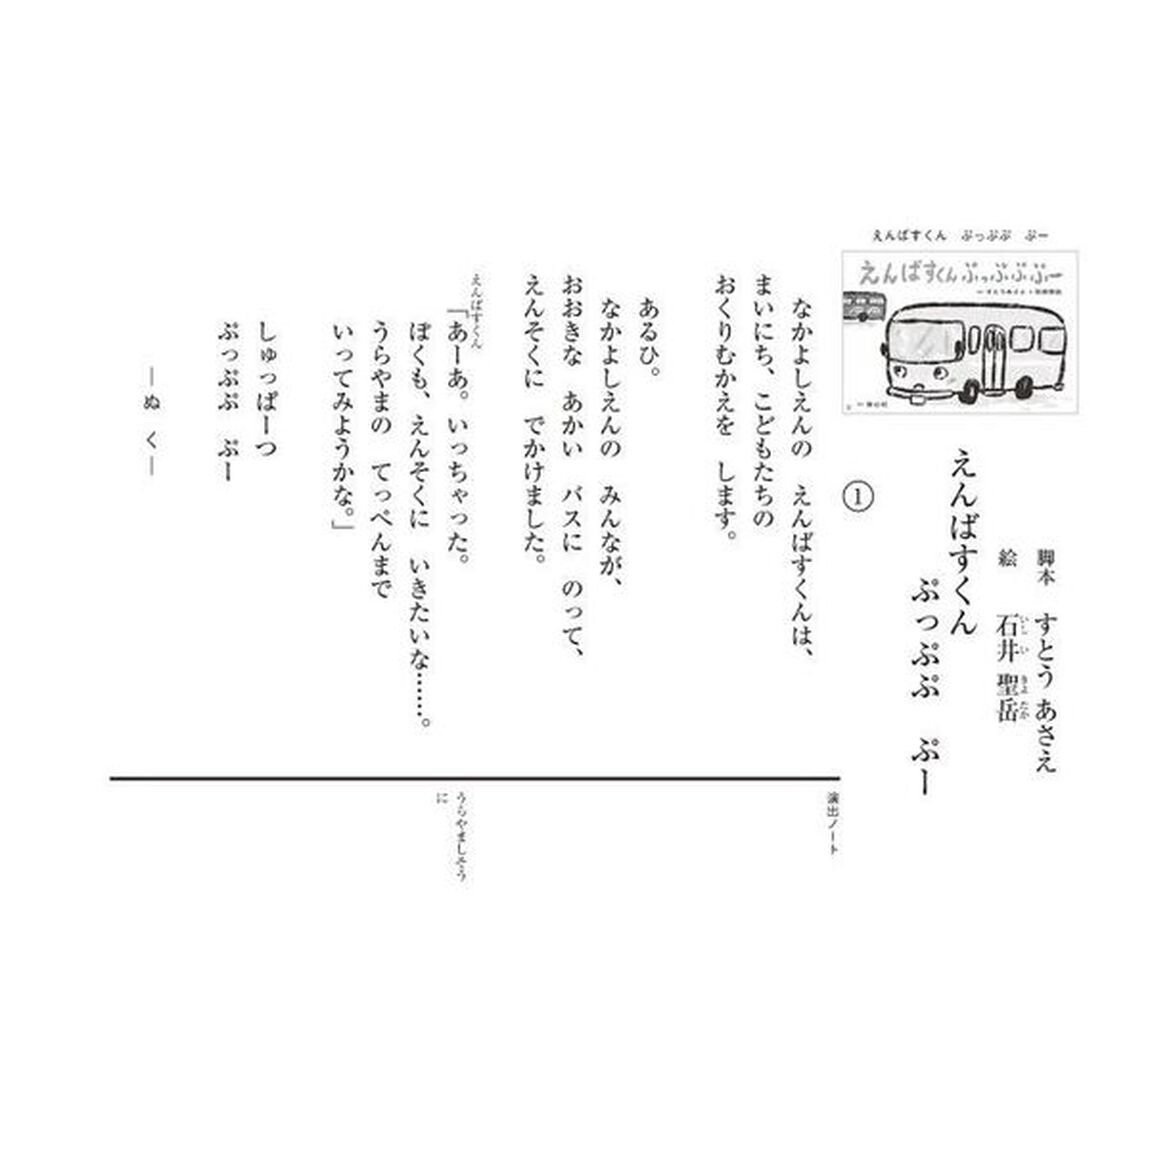 えんばすくん　ぷっぷぷ　ぷー
えんばすくん ぷっぷぷ ぷー
脚本　すとう あさえ
絵　石井 聖岳
いし い きよ たか
えんばすくん
ぷっぷぷ　ぷー
①
なかよしえんの　えんばすくんは、
まいにち、こどもたちの
おくりむかえを　します。
あるひ。
なかよしえんの　みんなが、
おおきな　あかい　バスに　のって、
えんそくに　でかけました。
えんばすくん
「あーあ。いっちゃった。
ぼくも、えんそくに　いきたいな……。
うらやまの　てっぺんまで
いってみようかな。」
しゅっぱーつ
ぷっぷぷ　ぷー
―ぬ　く―
演出ノート
うらやましそう
に